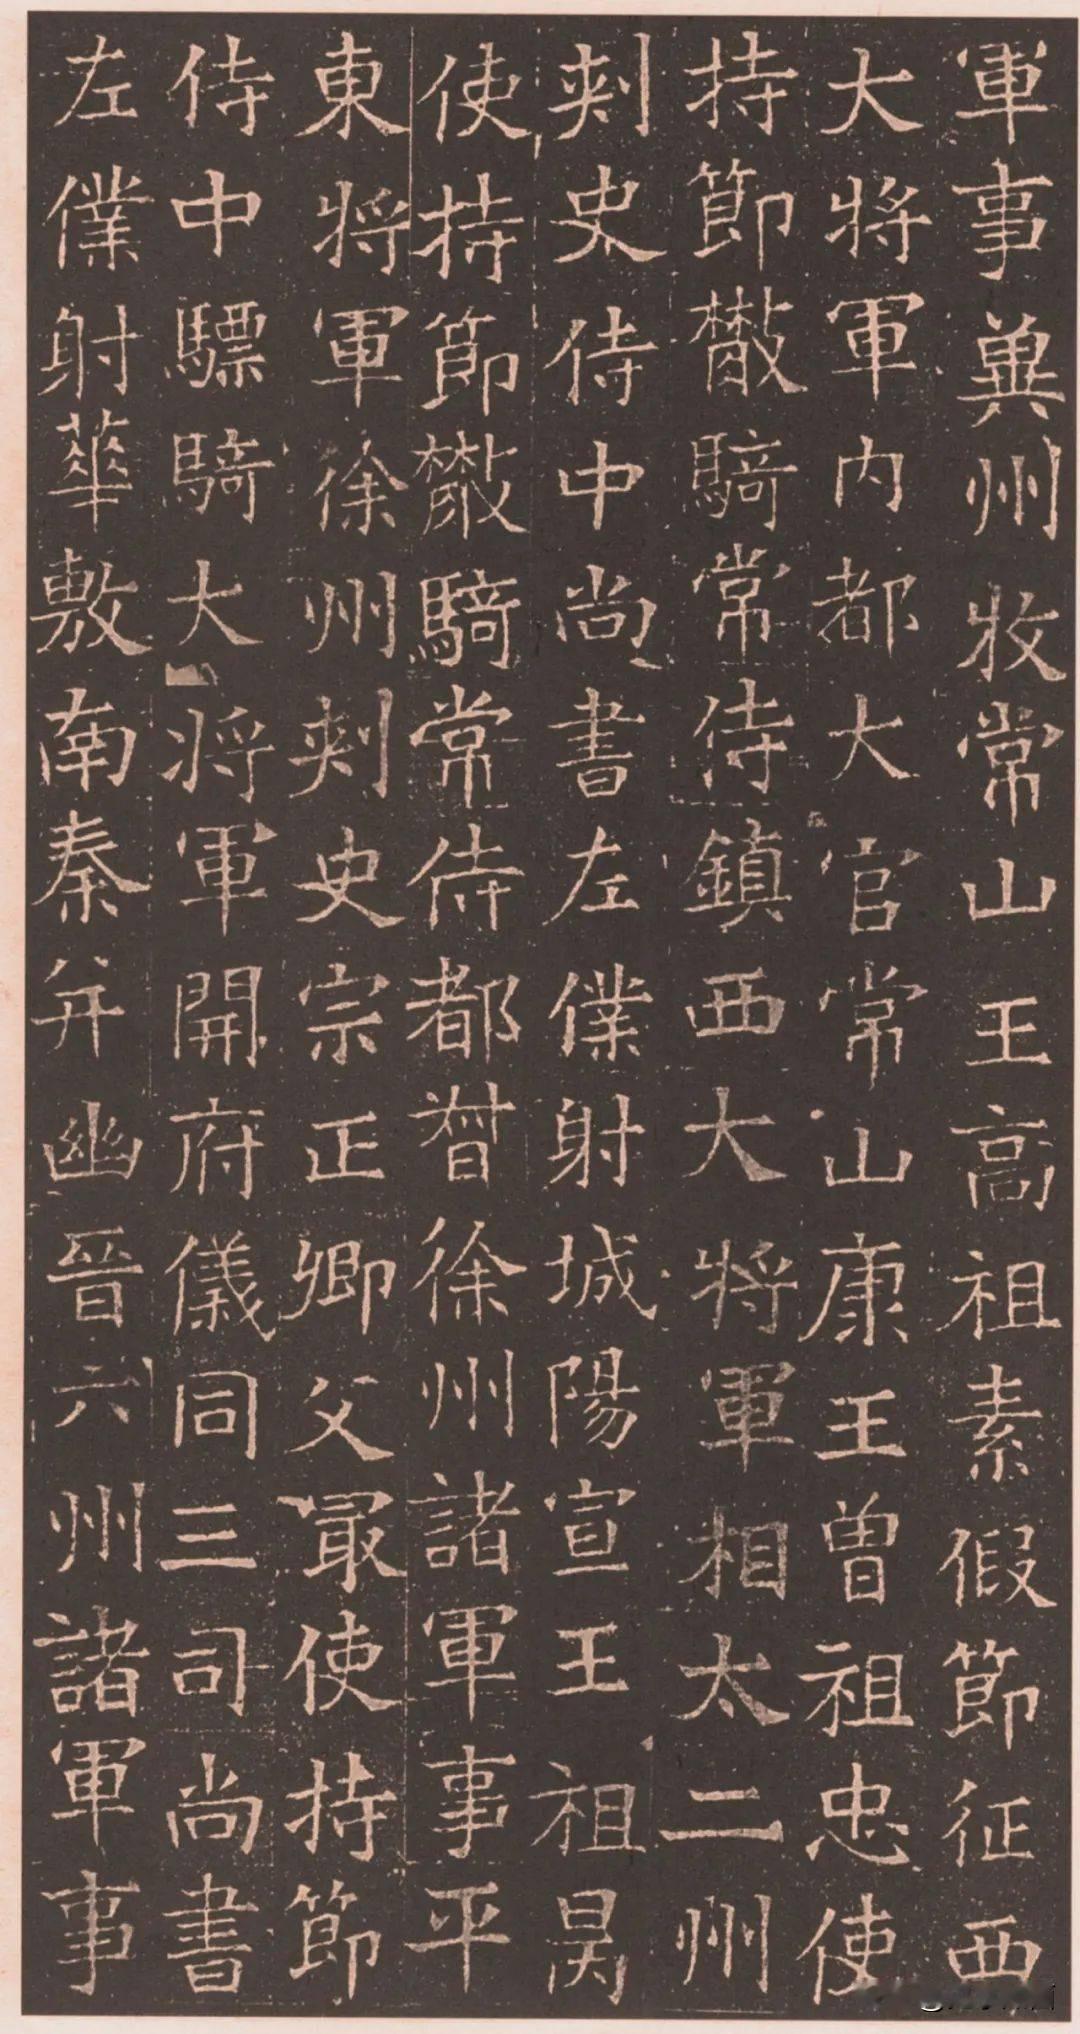 軍事兾州牧常山王高祖素假節征西
大將軍内都大官常山康王曾祖忠使
持節散騎常侍鎮西大將軍相太二州
刾史侍中尚書左僕射城陽宣王祖昺
使持節散騎常侍都督徐州諸軍事平
東將軍徐州刾史宗正卿父冣使持節
侍中驃騎大將軍開府儀同三司尚書
左僕射華敷南秦并幽晉六州諸軍事